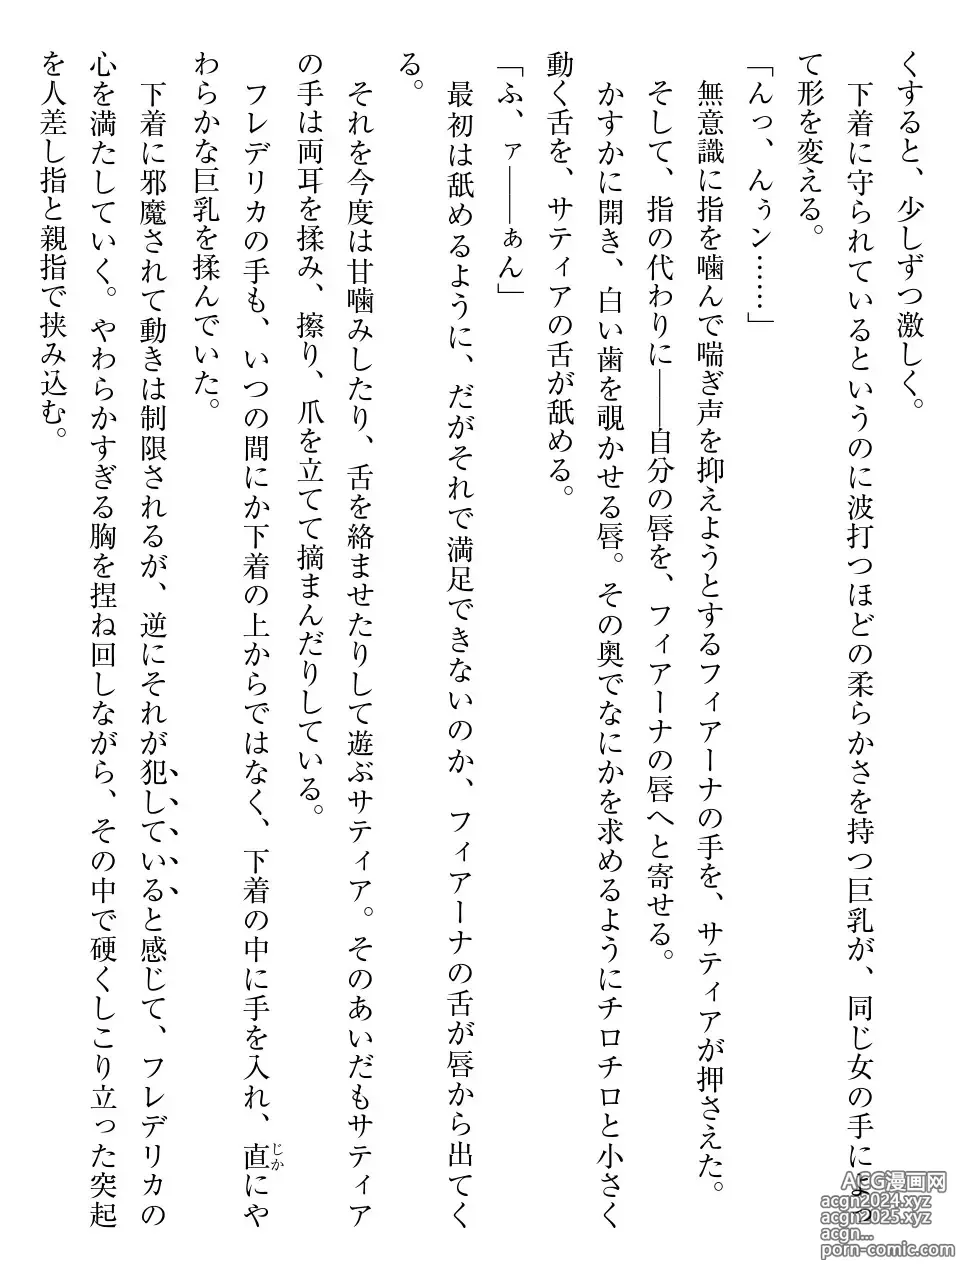 くすると、少しずつ激しく。
　下着に守られているというのに波打つほどの柔らかさを持つ巨乳が、同じ女の手によっ
て形を変える。
「んっ、んぅン……」
　無意識に指を噛んで喘ぎ声を抑えようとするフィアーナの手を、サティアが押さえた。
　そして、指の代わりに――自分の唇を、フィアーナの唇へと寄せる。
　かすかに開き、白い歯を覗かせる唇。その奥でなにかを求めるようにチロチロと小さく
動く舌を、サティアの舌が舐める。
「ふ、ァ――ぁん」
　最初は舐めるように、だがそれで満足できないのか、フィアーナの舌が唇から出てく
る。
　それを今度は甘噛みしたり、舌を絡ませたりして遊ぶサティア。そのあいだもサティア
の手は両耳を揉み、擦り、爪を立てて摘まんだりしている。
　フレデリカの手も、いつの間にか下着の上からではなく、下着の中に手を入れ、直にや
じか
わらかな巨乳を揉んでいた。
　下着に邪魔されて動きは制限されるが、逆にそれが犯していると感じて、フレデリカの
心を満たしていく。やわらかすぎる胸を捏ね回しながら、その中で硬くしこり立った突起
を人差し指と親指で挟み込む。
ACG漫画网
acgn2024.xyz
acgn2025.xyz
acgn...
porn-comic.com